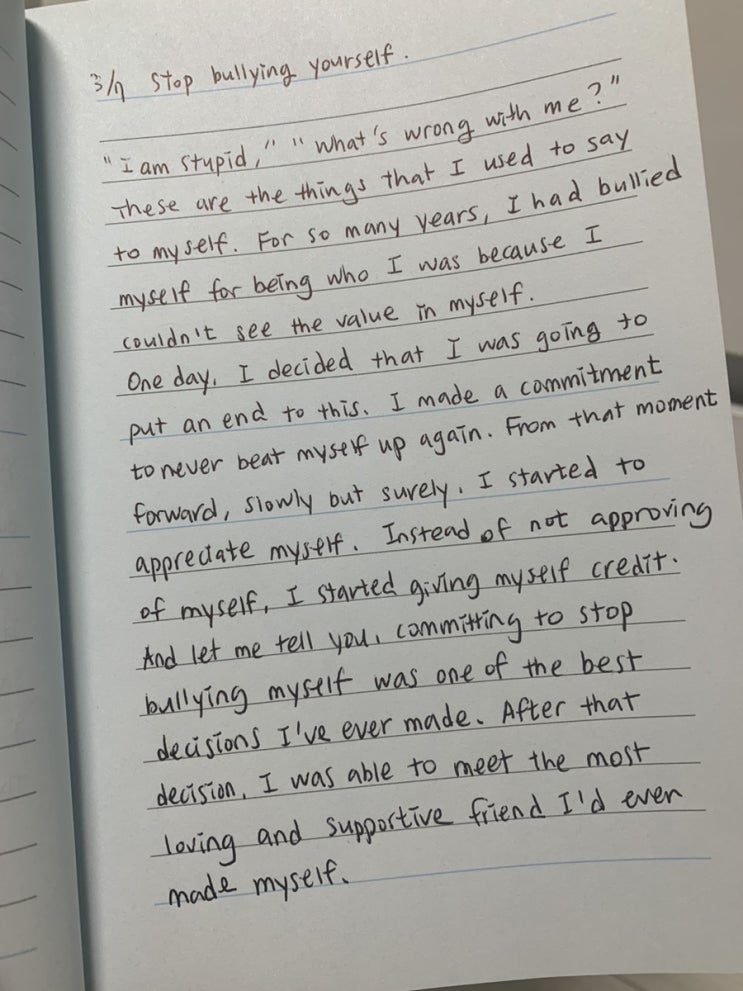 3/7 Stop bullying yourself.
"I am stupid," "What's wrong with me?"
These are the things that I used to say
to myself. For so many years, I had bullied
myself for being who I was because I
couldn't see the value in myself.
One day, I decided that I was going to
put an end to this. I made a commitment
to never beat myself up again. From that moment
forward, slowly but surely, I started to
appreciate myself. Instead of not approving
of myself, I started giving myself credit.
And let me tell you, committing to stop
bullying myself was one of the best
decisions I've ever made. After that
decision, I was able to meet the most
loving and supportive friend I'd ever
made myself.